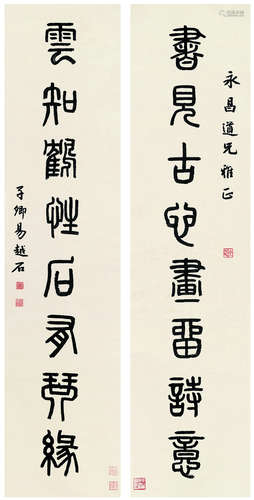 永昌道兄雅正
書見古心畫留詩意
雲知鶴性石有琴緣
子卿易越石